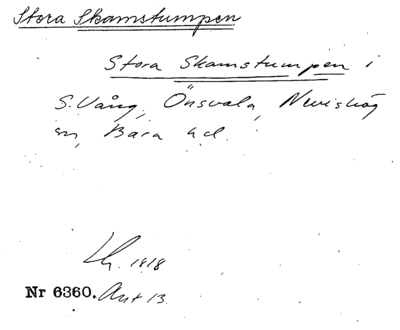 Stora Skamstumpen
Stora Skamstumpen i
S. Vång, Önsvala, Nevishög
sn, Bara hd.
Lh. 1818
Nr 6360. Akt 13.